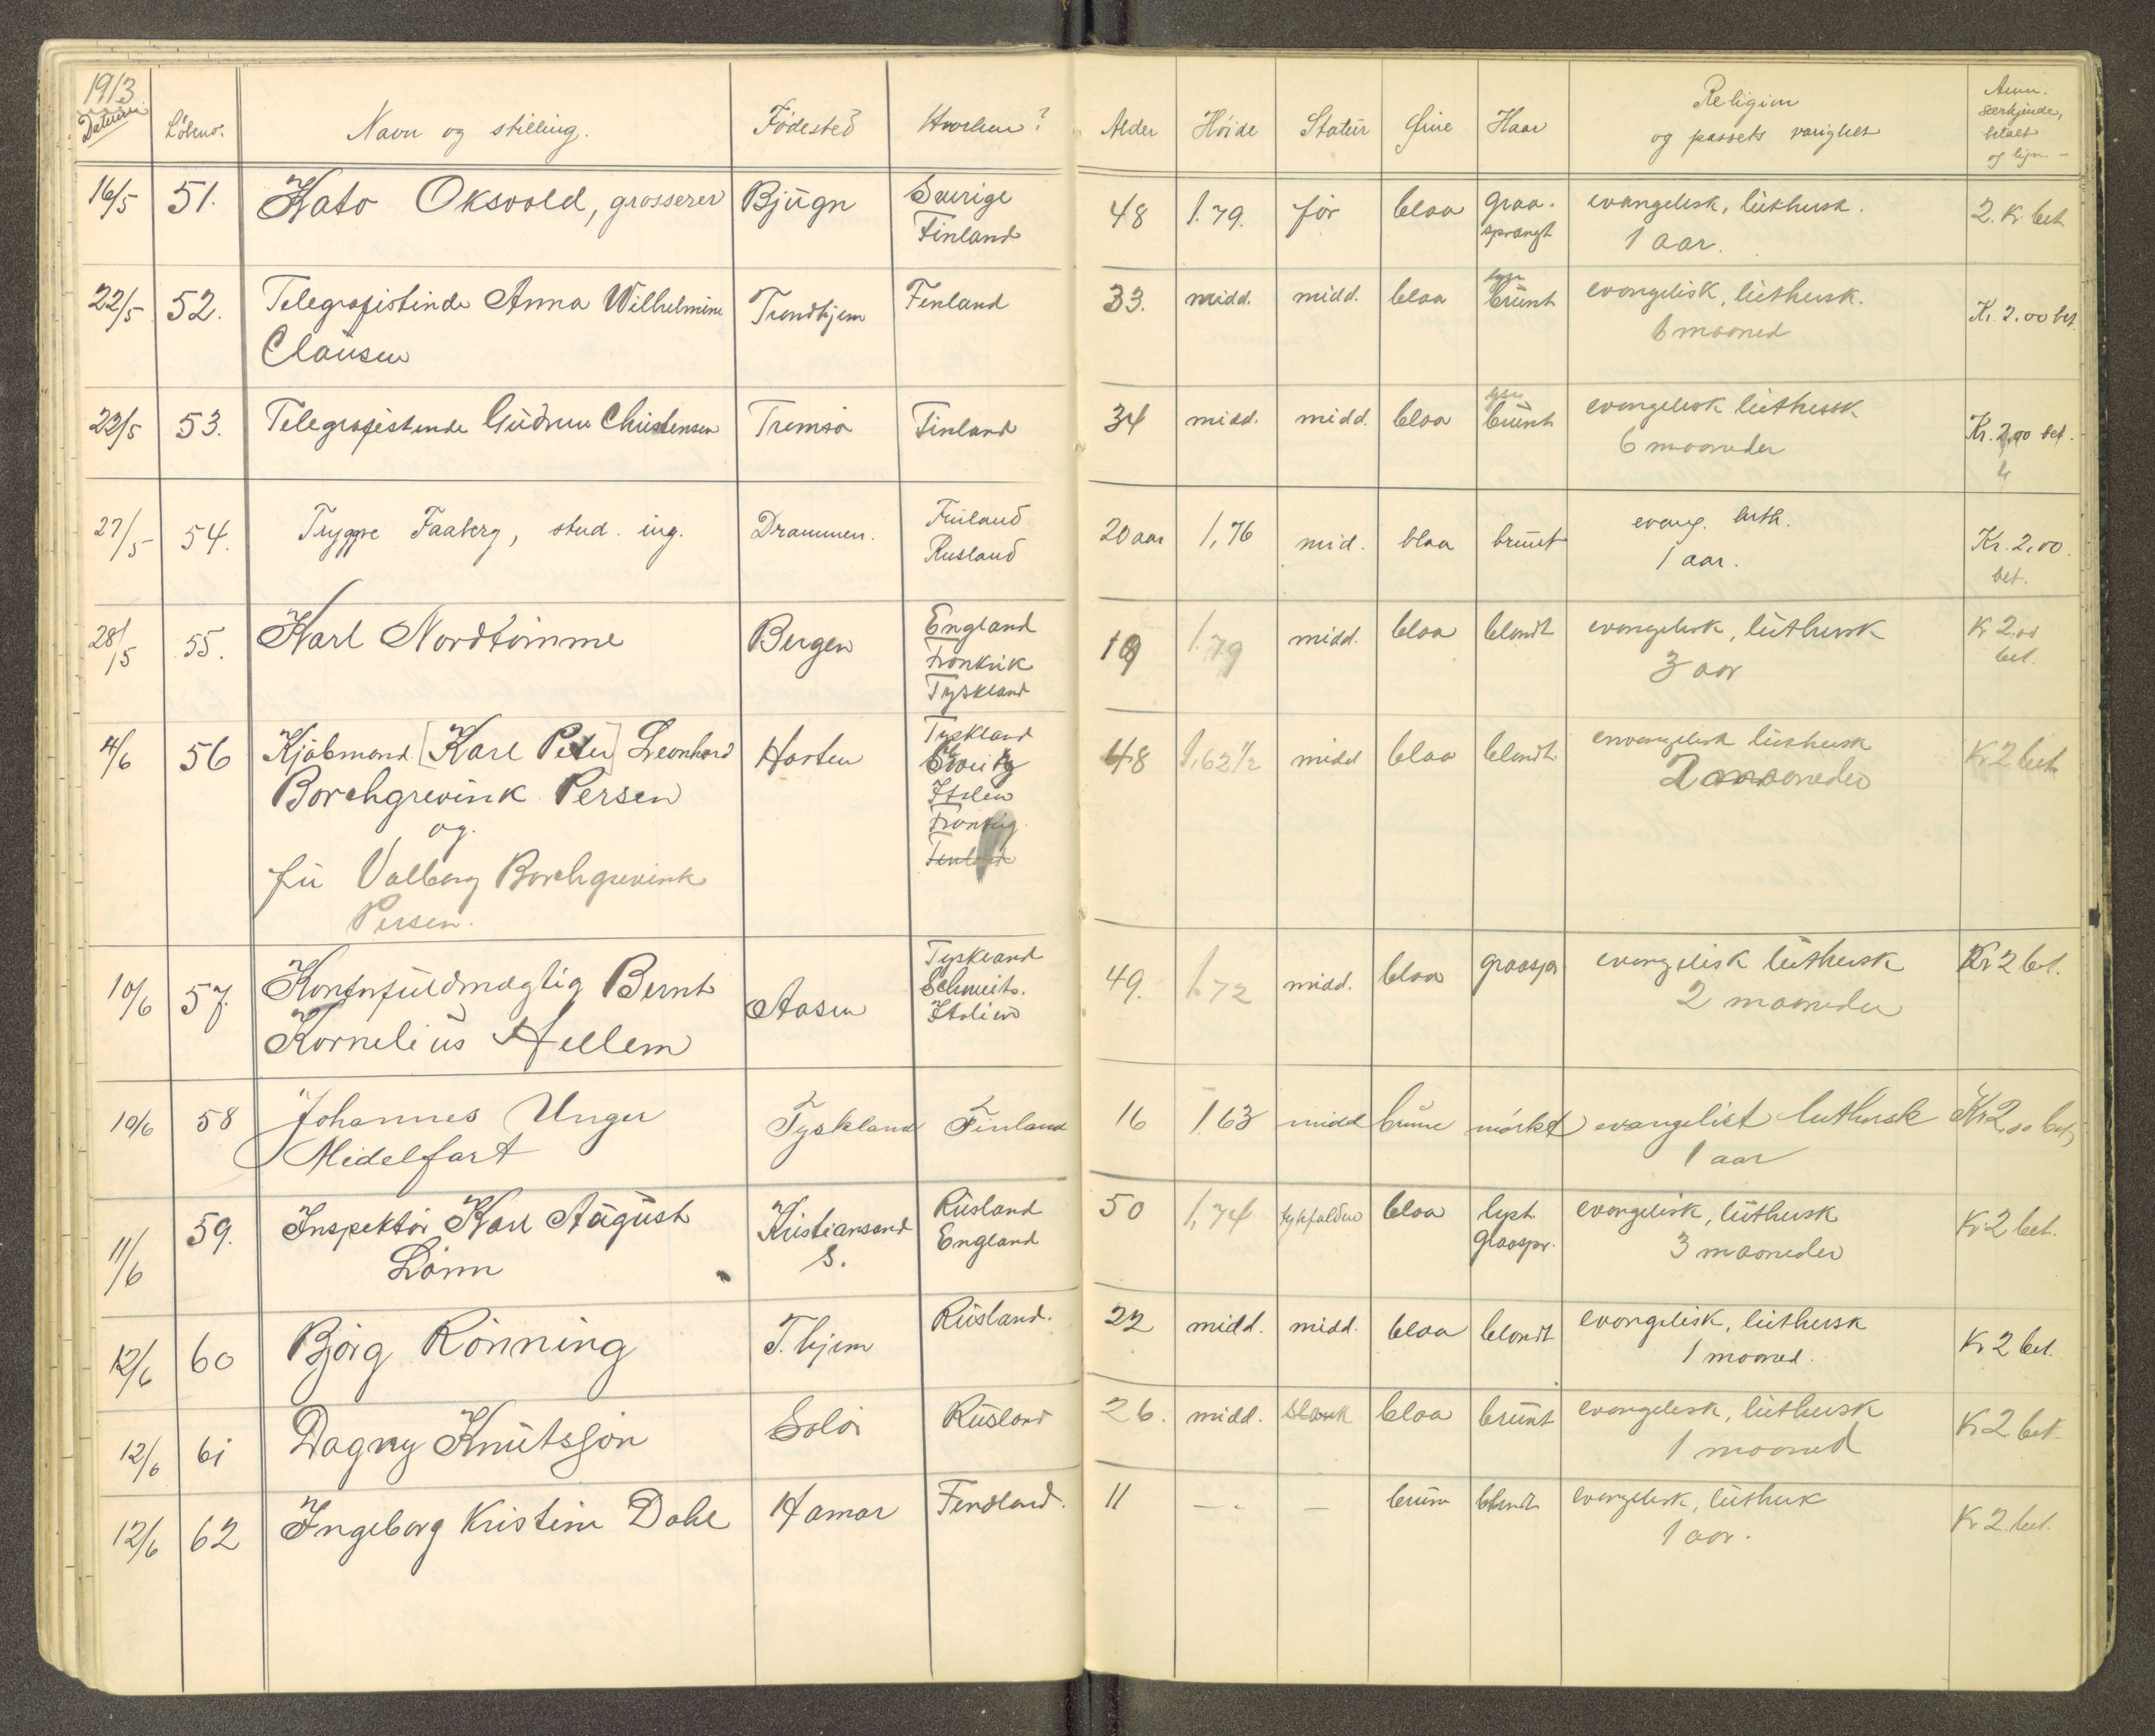 1913
Datum Löbeno. Navn og stilling. Födested Hvorhen? Alder Höide Statur Öine Haar Religion og passets varighet Anm. særkjende, betalt og lign. –
16/5 51. Kato Oksvold, grosserer Bjugn Sverige 48 1.79. før blaa graa- evangelisk, luthersk. 2. Kr bet.
Finland sprængt 1 aar.
22/5 52. Telegrafistinde Anna Wilhelmine Trondhjem Finland 33. midd. midd. blaa lyse brunt evangelisk, luthersk. Kr. 2.00 bet.
Clausen 6 maaned
23/5 53. Telegrafistinde Gudrun Christensen Tromsö Finland 34 midd. midd. blaa brunt evangelisk luthersk Kr. 2,00 bet.
6 maaneder
27/5 54. Tryggve Faaberg, stud. ing. Drammen. Finland 20 aar 1,76 mid. blaa brunt evang. luth. Kr. 2,00
Rusland 1 aar. bet.
28/5 55. Karl Nordtömme Bergen England 19 1.79 midd. blaa blondt evangelisk, luthersk Kr 2.00
Frankrik 3 aar bet.
Tyskland
4/6 56 Kjöbmand [Karl Peter] Leonhard Horten Tyskland 48 1,62½ midd blaa blondt envangelisk luthersk Kr 2 bet
Borchgrevink Persen 2 maaneder
og. Italien
fru Valborg Borchgrevink
Persen.
10/6 57. Kontorfuldmægtig Bernt Aasen Tyskland 49. 1.72 midd. blaa graaspr evangelisk luthersk Kr 2 bet.
Kornelius Hellem Schweits. 2 maaneder
Italien
10/6 58 Johannes Unger Tyskland Finland 16 1.63 midd brune mörkt evangelist luthersk Kr 2,00 bet,
Midelfart 1 aar
11/6 59. Inspektör Karl August Kristiansand Rusland 50 1,74 tykfalden blaa lyst evangelisk, luthersk Kr. 2 bet.
Lönn S. England graaspr. 3 maaneder
12/6 60 Björg Rönning T.hjem Rusland. 22 midd. midd. blaa blondt evangelisk, luthersk Kr 2 bet.
1 maaned.
12/6 61 Dagny Knutssön Solör Rusland 26. midd. slank blaa brunt evangelisk, luthersk Kr 2 bet.
1 maaned
12/6 62 Ingeborg Kristine Dahl Hamar Findland. 11 – – brun blondt evangelisk, luthersk Kr 2. bet.
1 aar.